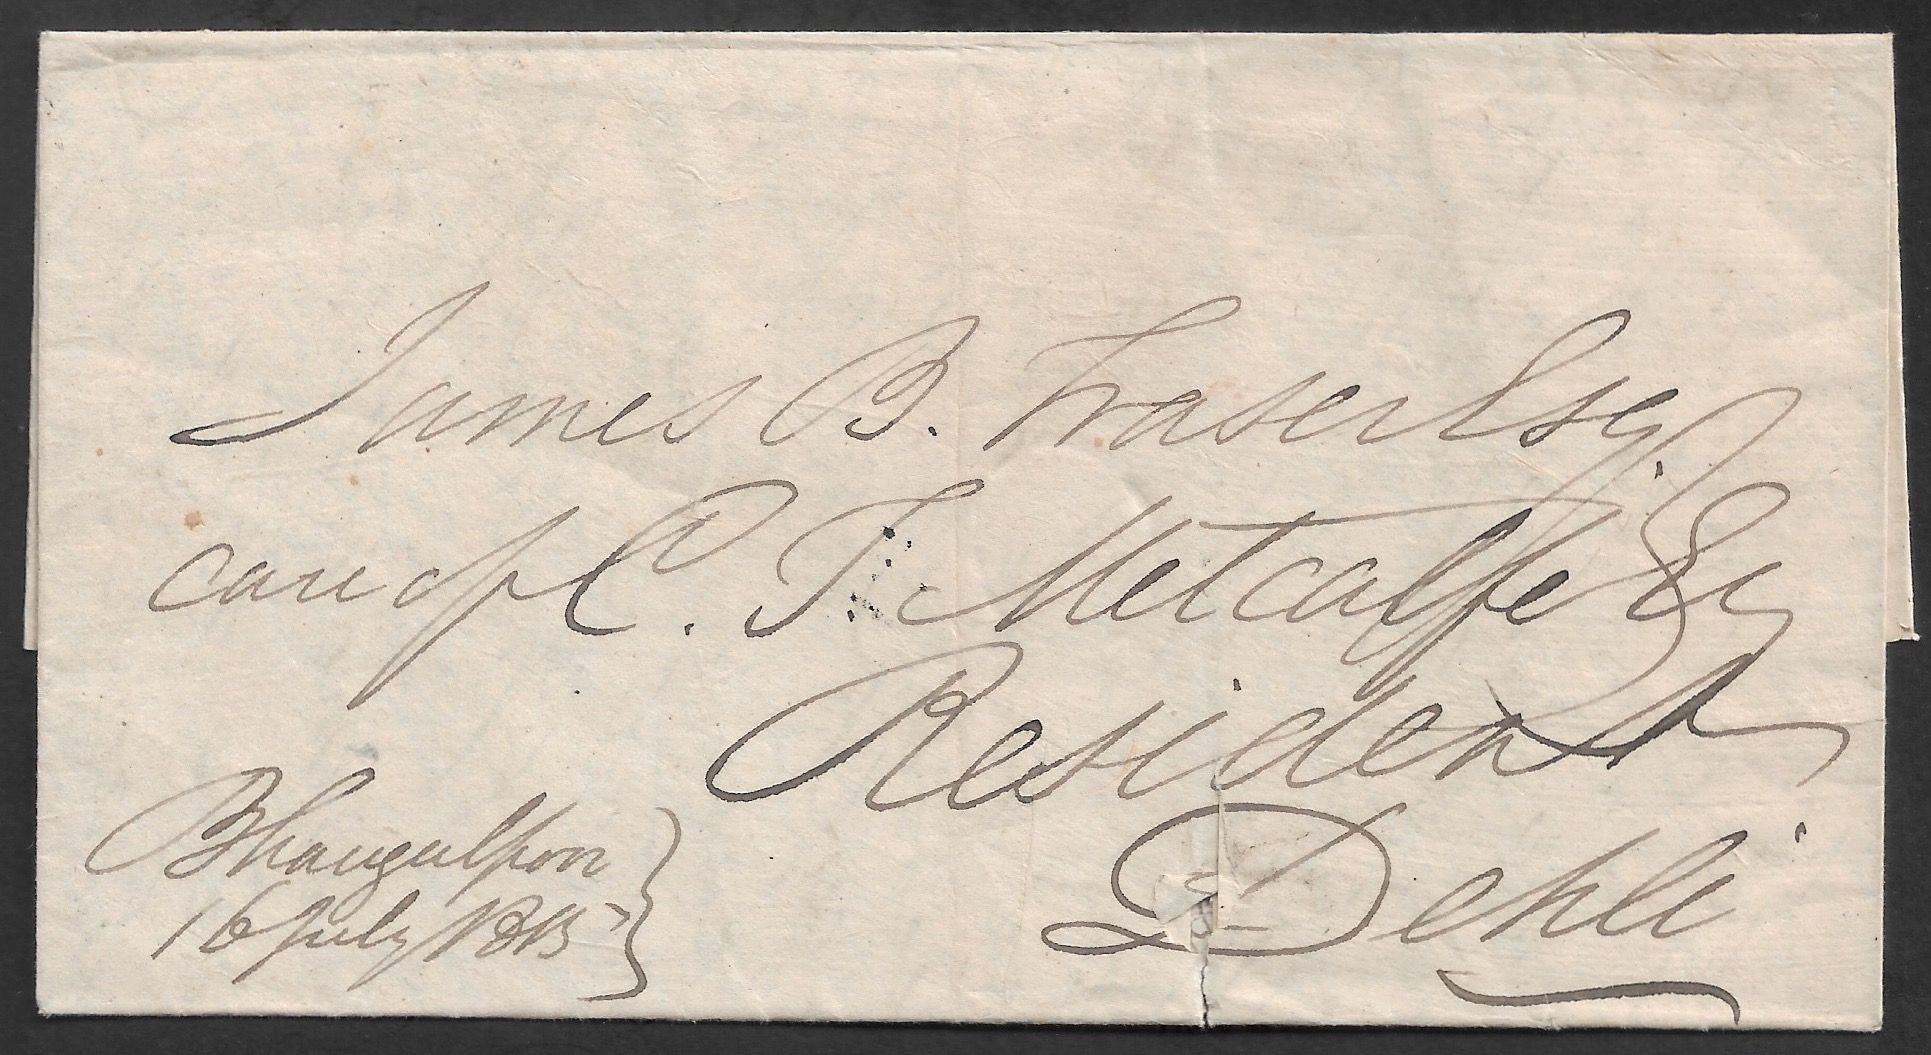 James B. Fraser Esq.
care of C. T. Metcalfe Esq
Resident
Dehli
Bhaugulpoor
16 July 1815